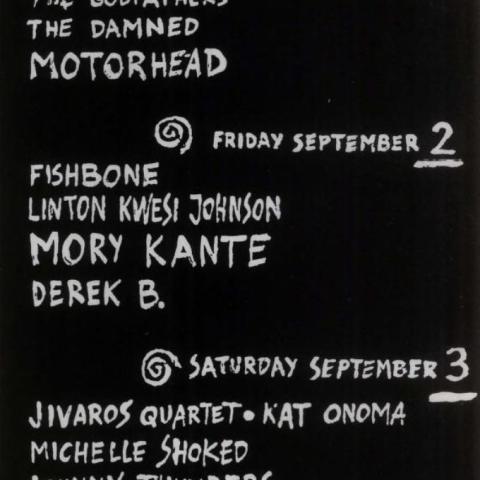 THE GODFATHERS
THE DAMNED
MOTORHEAD
FRIDAY SEPTEMBER 2
FISHBONE
LINTON KWESI JOHNSON
MORY KANTE
DEREK B.
SATURDAY SEPTEMBER 3
JIVAROS QUARTET • KAT ONOMA
MICHELLE SHOKED
JOHNNY THUNDERS